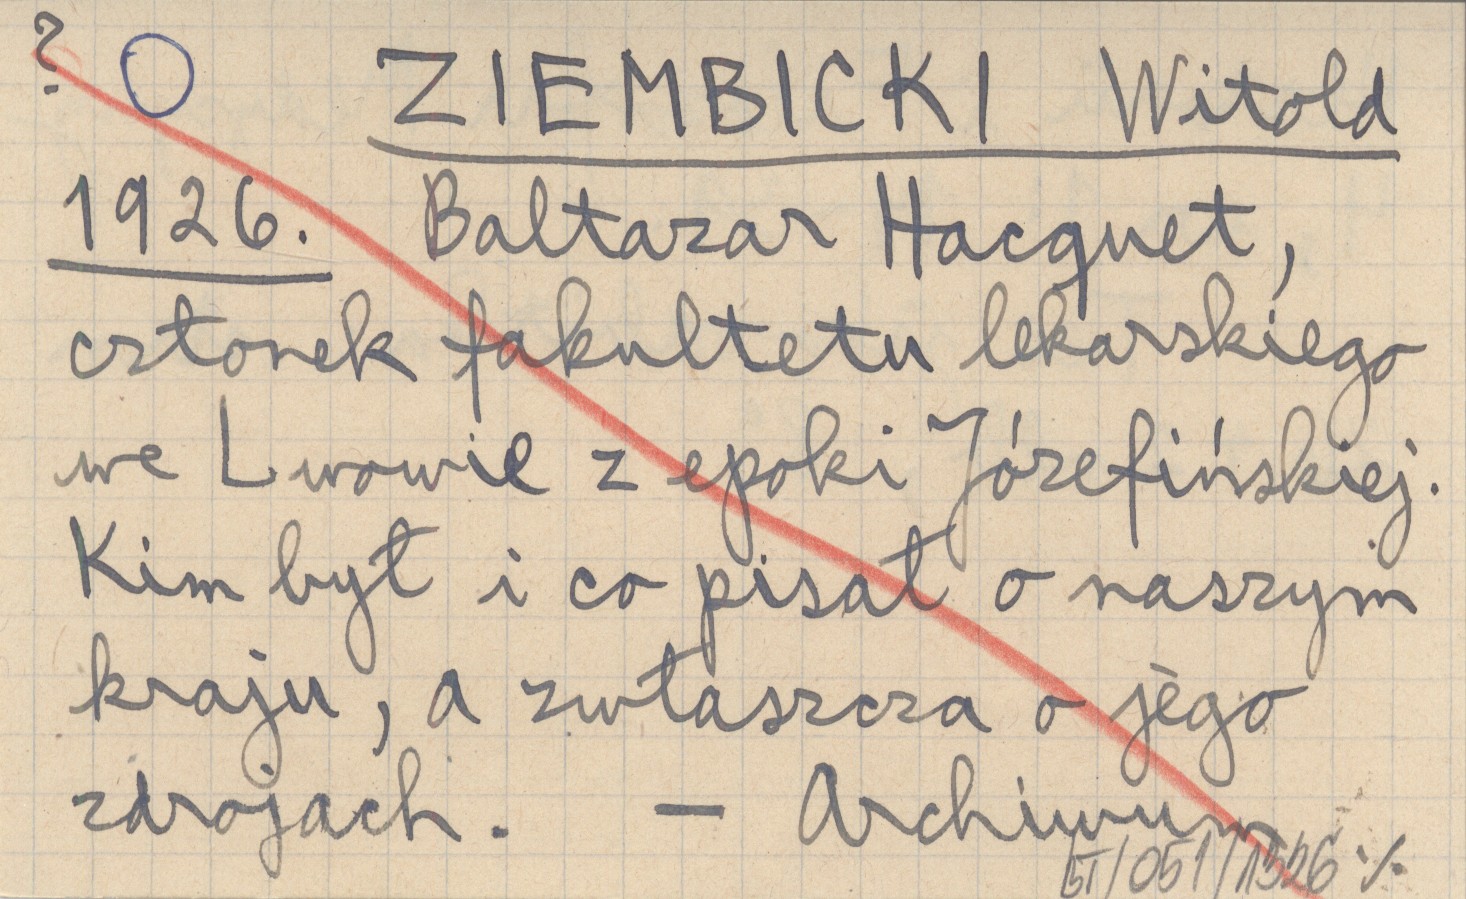 ? O ZIEMBICKI Witold
1926. Baltazar Hacquet,
członek fakultetu lekarskiego
we Lwowie z epoki Józefińskiej.
Kim był i co pisał o naszym
kraju, a zwłaszcza o jego
zdrojach. — Archiwum
/051/1526 ·/.